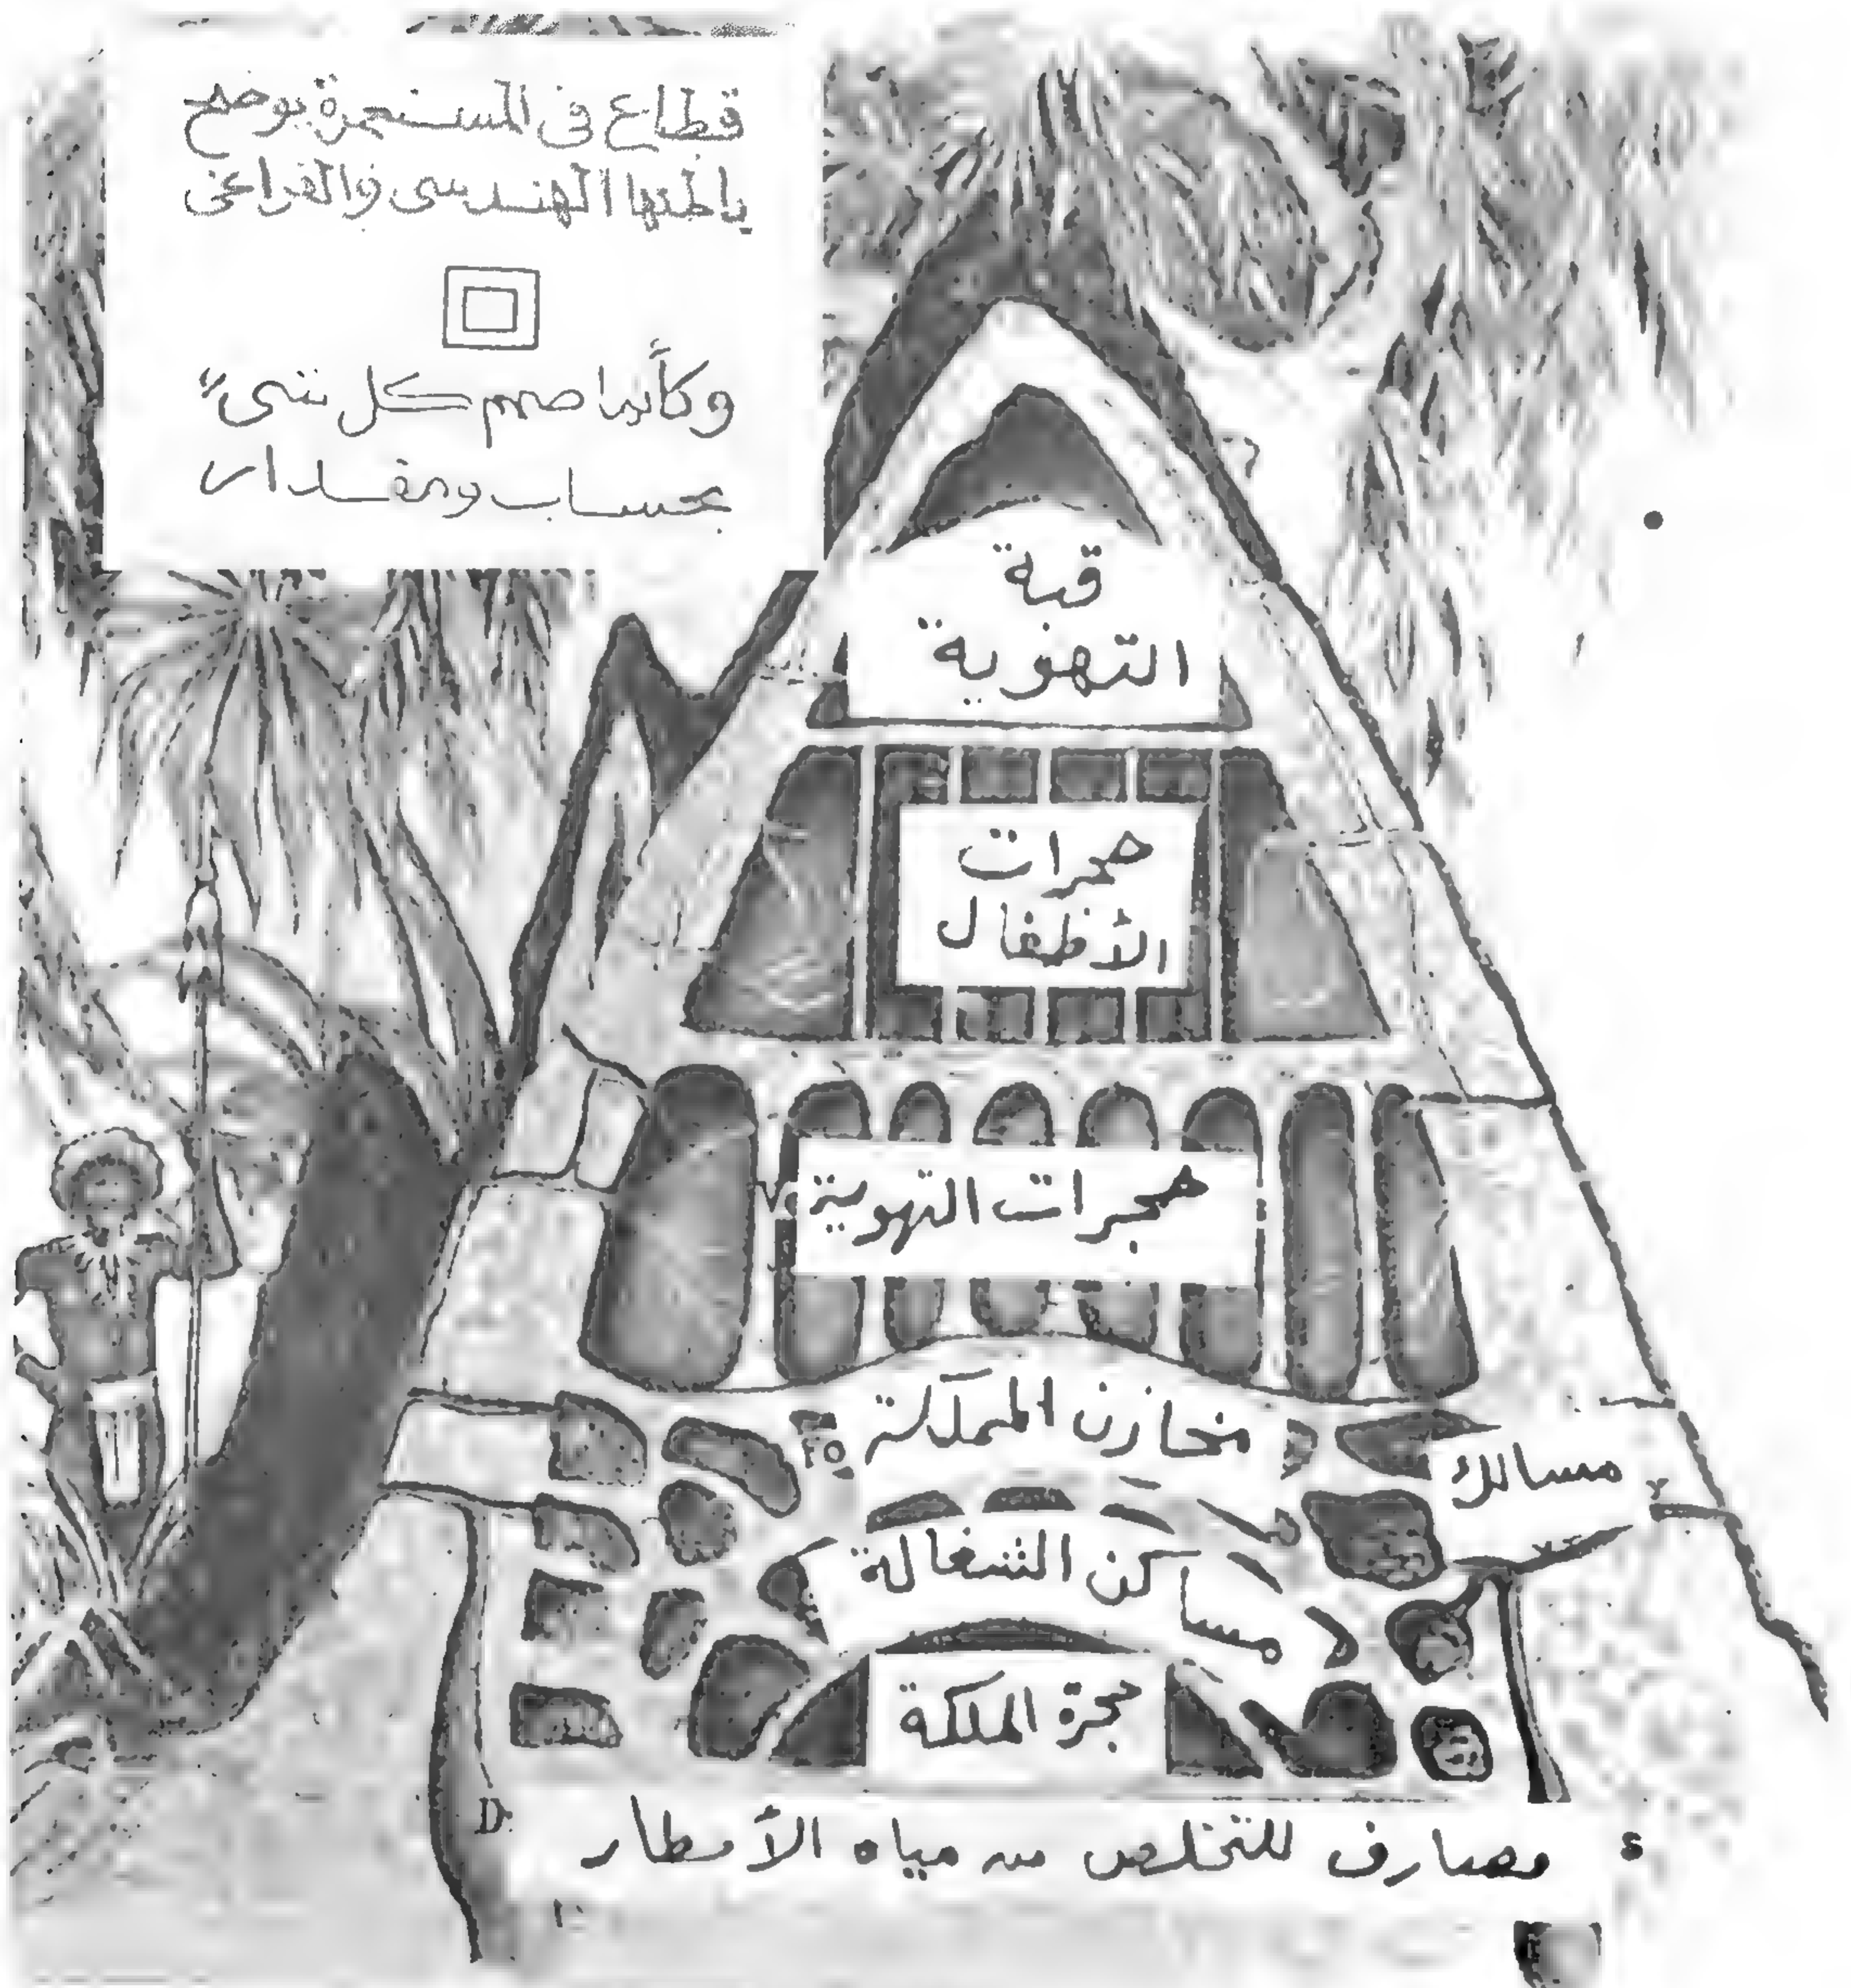 قطاع فى المستعمرة يوضح
بناءها الهندسى والفراغى
وكأنما صمم كل شىء
بحساب ومقدار
قبة
التهوية
حجرات
الأطفال
حجرات التهوية
مخازن المملكة
مسالك
مساكن الشغالة
حجرة الملكة
D
مصارف للتخلص من مياه الأمطار